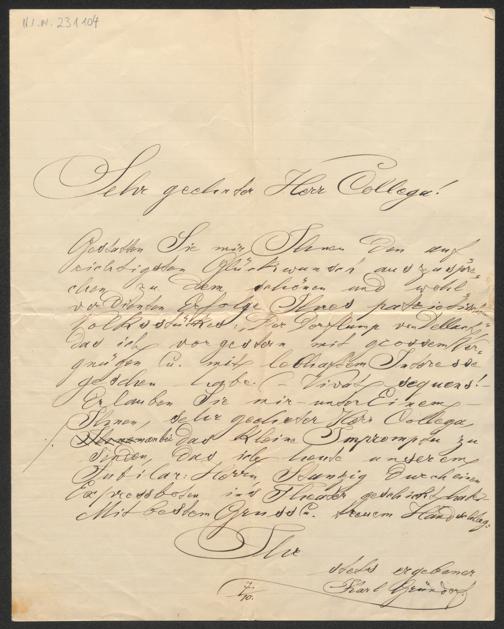 N.I.N. 231104
Sehr geehrter Herr Collega!
Gestatten Sie mir, Ihnen den auf
richtigsten Glückwunsch auszuspre-
chen zu dem schönen und wohl
verdienten Erfolge Ihres patriotisch
Volksstückes: "Der Dorflump von
das ich vorgestern mit grossem Ver-
gnügen u. mit lebhaftem Interesse
gesehen habe. (- Vivat sequens!
Erlauben Sie mir unter Einem
Ihnen, sehr geehrter Herr Collega
das kleine Impromptu zu
senden, das ich heute unserem
Jubilar: Herrn durch einen
Expressboten ins Theater geschickt habe.
Mit bestem Gruss u. treuem Händschlag,
Ihr
stets ergebener
Karl Gründorf
/10.